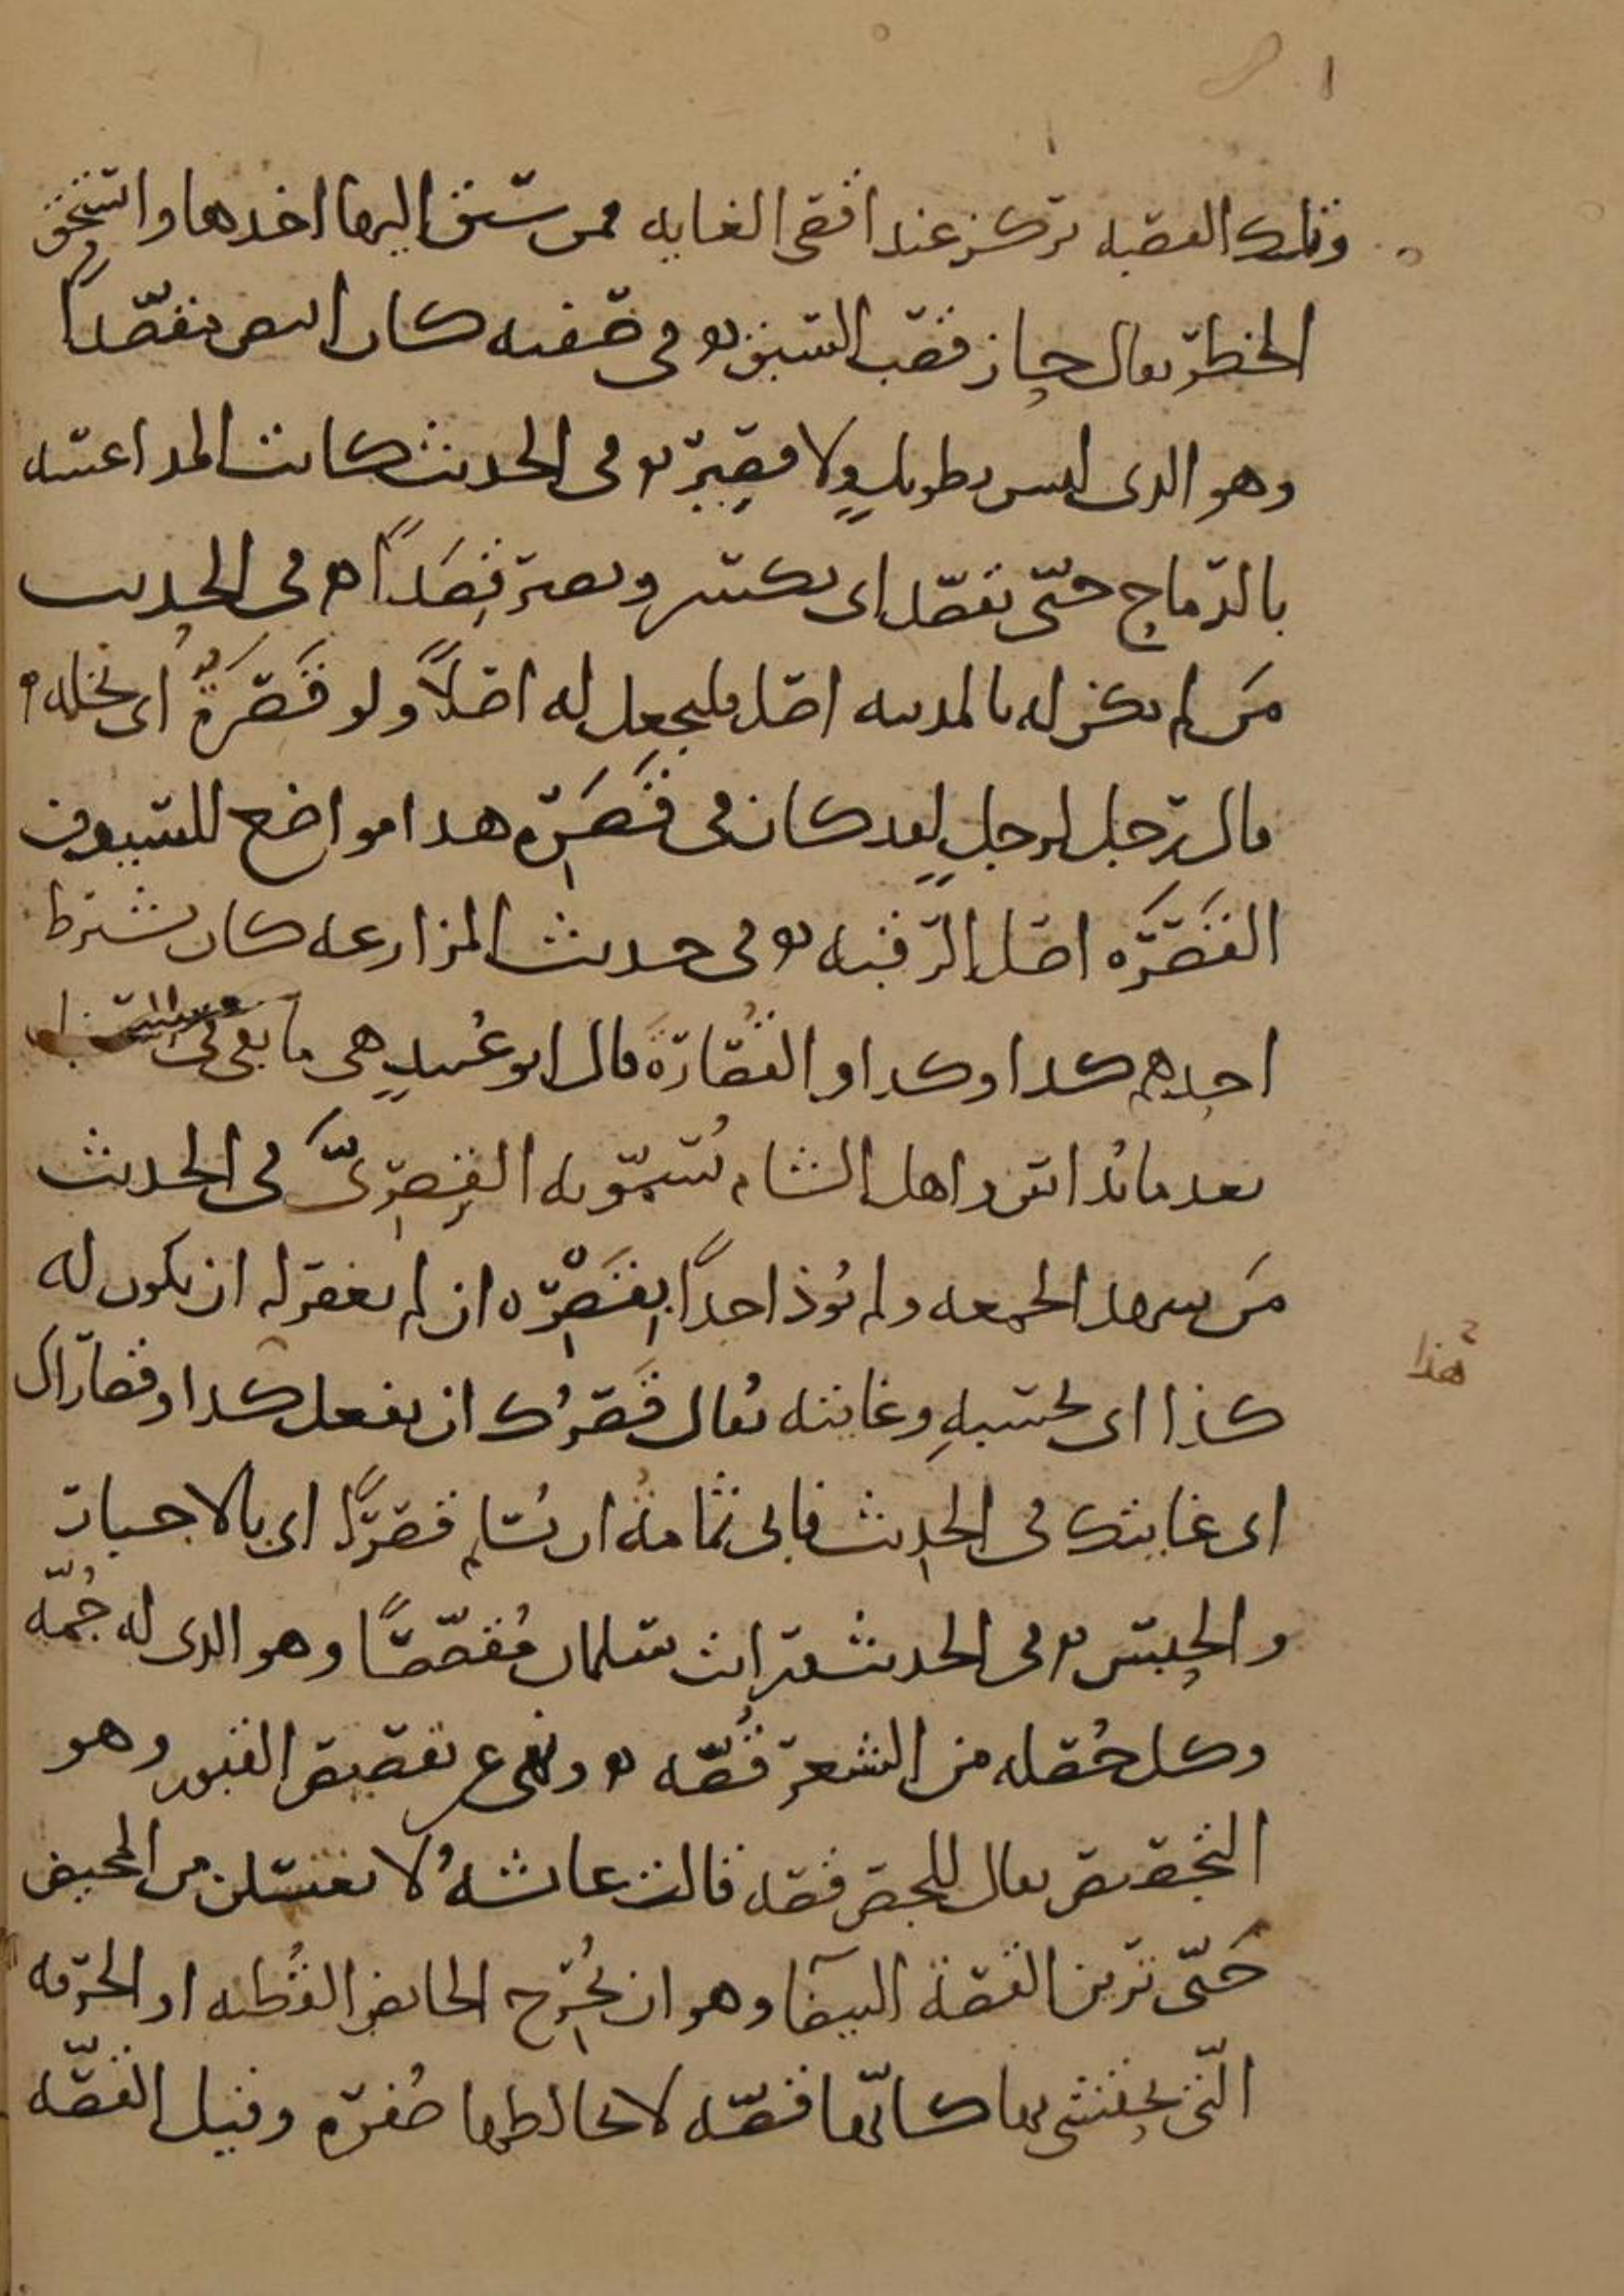 وتلك القصبه تركز عند اقصى الغايه فمن سبق اليها اخذها واستحق
الخطر يقال حاز قصب السبق وفي صفته كان ابيض مقصدا
وهو الذي ليس بطويل ولا قصير وفي الحديث كانت المداعسه
بالرماح حتى تقصد اي تكسر وتصير قصدا وفي الحديث
من لم يكن له بالمدينه اصل فليجعل له اصلا ولو قصرة اي نخله
قال رجل لرجل لقد كان في قصره هذا مواضع للسيوف
القصره اصل الرقبه وفي حديث المزارعه كان يشترط
احدهم كذا وكذا والقصارة قال ابو عبيد هي ما بقي في السنبل
بعد ما يداس واهل الشام يسمونه القصري في الحديث
من شهد الجمعه ولم يوذ احدا بقصره ان لم يغفر له ان يكون له
كذا اي بحسبه وغايته يقال قصرك ان تفعل كذا وقصارك
اي غايتك في الحديث فابى ثمامة ان يسلم قصرا اي بالاجبار
والحبس وفي الحديث رايت سلمان مقصصا وهو الذي له جمه
وكل خصله من الشعر قصه ونهى عن تقصيص القبور وهو
التجصيص يقال للجص قصه قالت عائشة لا تغتسلن من المحيض
حتى ترين القصة البيضا وهو ان تخرج الحائض القطنه او الخرقه
التي تحتشي بها كانها قصه لا يخالطها صفره وقيل القصه
هذا